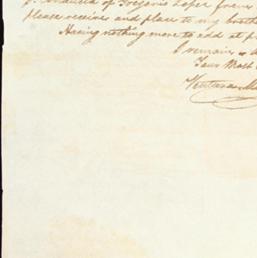 of Gregorio Lopez from
please receive and place to my broth
Having nothing more to add at p
I remain
Your Most